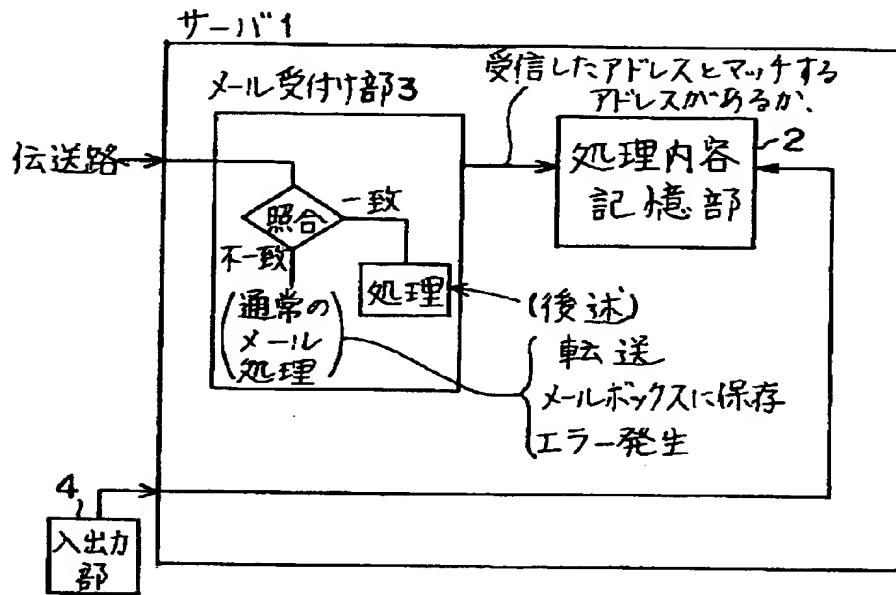 サーバ1
メール受付け部3
受信したアドレスとマッチする
アドレスがあるか.
伝送路
照合
一致
不一致
処理
(通常の
メール
処理)
2
処理内容
記憶部
(後述)
転送
メールボックスに保存
エラー発生
4
入出力
部